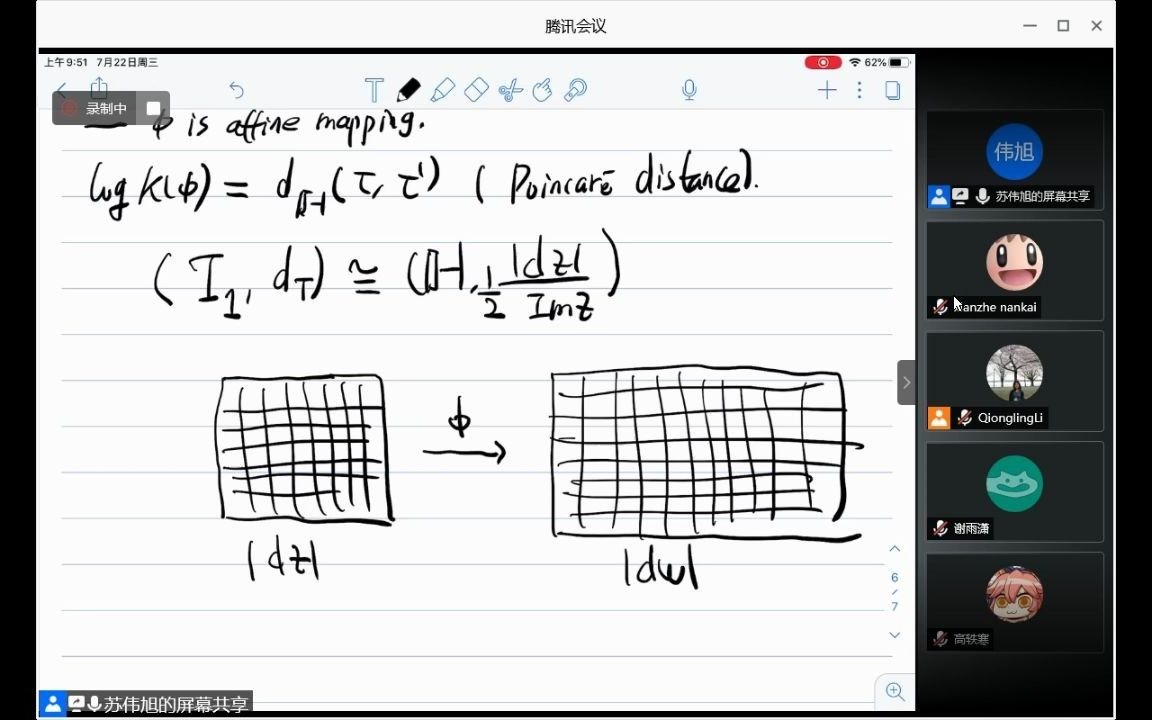 腾讯会议
上午9:51 7月22日周三
62%
录制中
ϕ is affine mapping.
log K(ϕ) = d_ℍ(τ, τ') (Poincaré distance).
(T_1, d_T) ≅ (ℍ, 1/2 |dz|/Imz)
ϕ
|dz|
|dw|
6
7
苏伟旭的屏幕共享
伟旭
苏伟旭的屏幕共享
nanzhe nankai
QionglingLi
谢雨潇
高轶寒